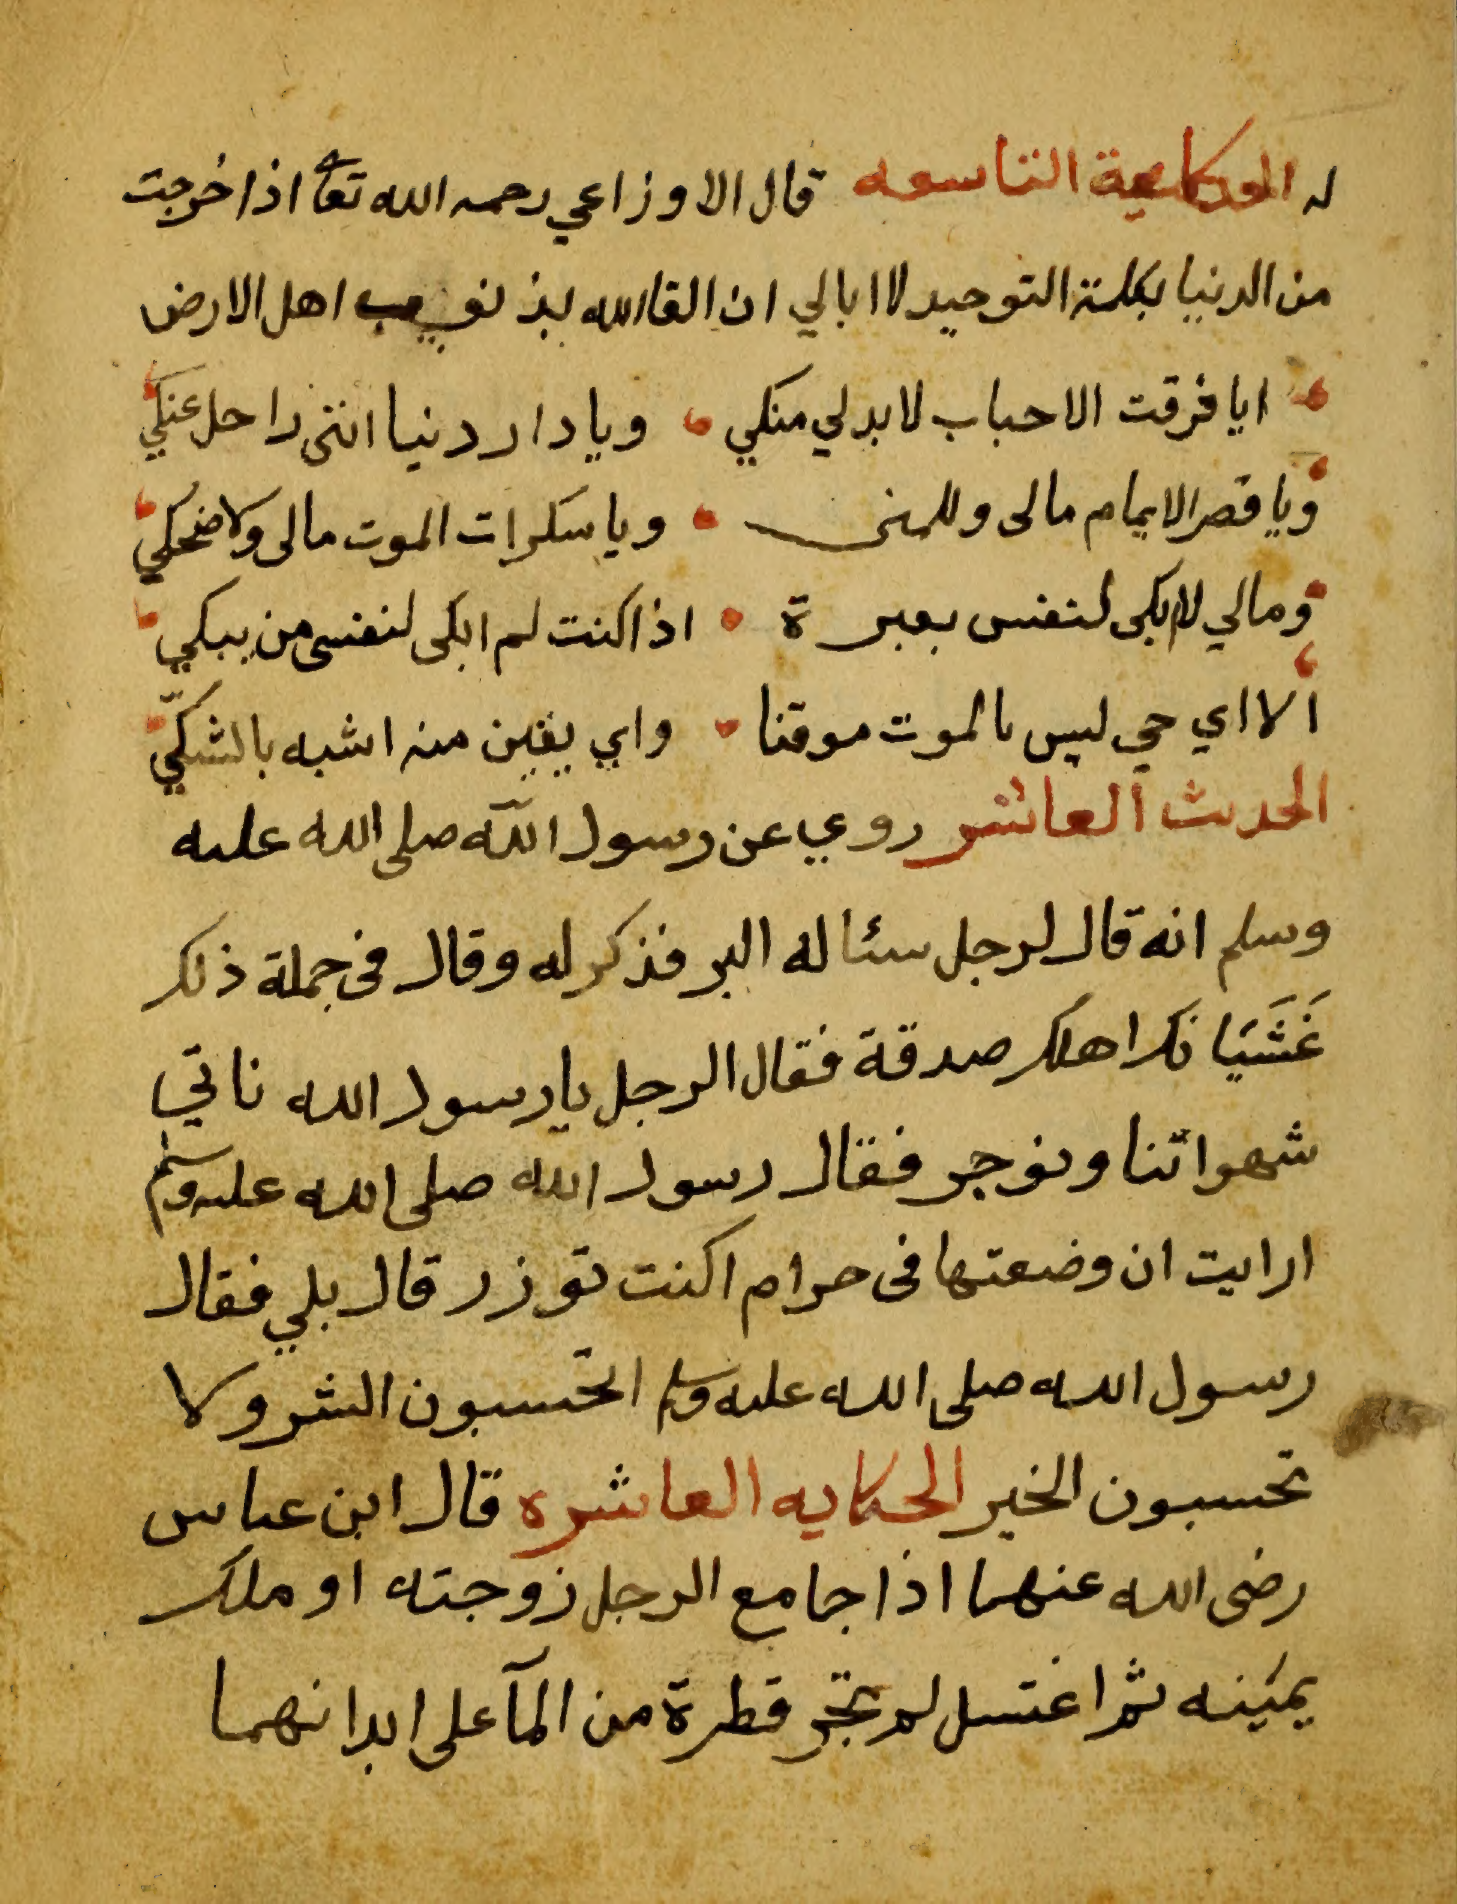 له الحكاية التاسعه قال الاوزاعي رحمه الله تعا اذا خرجت
من الدنيا بكلمة التوحيد لا ابالي ان القا الله بذنوب اهل الارض
ايا فرقت الاحباب لا بد لي منكي ويا دار دنيا انني راحل عنكي
ويا قصر الايام مالى وللمنى ويا سكرات الموت مالى ولا ضحكي
ومالي لا ابكى لنفس بعبرة اذا كنت لم ابكى لنفسى من يبكي
الا اي حي ليس بالموت موقنا واي يقين منه اشبه بالشكّي
الحديث العاشر روي عن رسول الله صلى الله عليه
وسلم انه قال لرجل سئاله البر فذكر له وقال فى جملة ذلك
غَشَيَانك اهلك صدقة فقال الرجل يا رسول الله ناتي
شهواتنا ونوجر فقال رسول الله صلى الله عليه وسلم
ارايت ان وضعتها فى حرام اكنت توزر قال بلي فقال
رسول الله صلى الله عليه وسلم اتحتسبون الشر ولا
تحسبون الخير الحكايه العاشره قال ابن عباس
رضى الله عنهما اذا جامع الرجل زوجته او ملك
يمينه ثم اغتسل لم تجر قطرة من المآ على ابدانهما